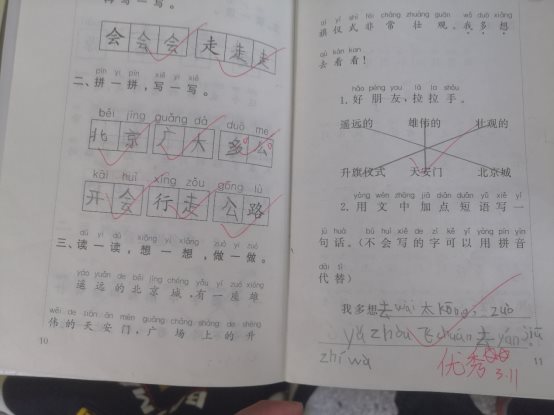 再写一写。
会 会 会 走 走 走
pīn yì pīn xiě yì xiě
二、拼一拼,写一写。
běi jīng guǎng dà duō me
北 京 广 大 多 么
kāi huì xíng zǒu gōng lù
开 会 行 走 公 路
dú yì dú xiǎng yì xiǎng zuò yí zuò
三、读一读,想一想,做一做。
yáo yuǎn de běi jīng chéng yǒu yí zuò xióng
遥远的北京城,有一座雄
wěi de tiān ān mén guǎng chǎng shàng de shēng
伟的天安门,广场上的升
10
qí yí shì fēi cháng zhuàng guān wǒ duō xiǎng
旗仪式非常壮观。我多想
qù kàn kan
去看看!
hǎo péng you lā lā shǒu
1.好朋友,拉拉手。
遥远的 雄伟的 壮观的
升旗仪式 天安门 北京城
yòng wén zhōng jiā diǎn duǎn yǔ xiě yí
2.用文中加点短语写一
jù huà bú huì xiě de zì kě yǐ yòng pīn yīn
句话。(不会写的字可以用拼音
dài tì
代替)
我多想去wai太kōng, zuò
yǔ zhòu飞chuán去
zhī wà
优秀
3.11
11